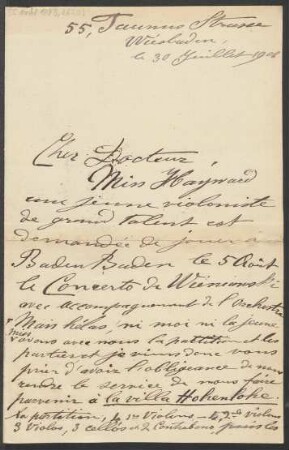 55, Taunus Strasse
Wiesbaden.
le 30 Juillet 1908
Cher Docteur,
Miss Hayward
une jeune violoniste
de grand talent est
demandée de jouer à
Baden Baden le 5 Août
le Concerto de Wieniawski
avec accompagnement de l'orchestre
Mais hélas, ni moi ni la jeune
miss n'avons avec nous la partition et les
parties et je viens donc vous
prier d'avoir l'obligeance de nous
rendre le service de nous faire
parvenir à la villa Hohenlohe.
la partition, 4 1rs Violons - 4 2ds violons
3 Violas, 3 cellos et 2 Contrebasses